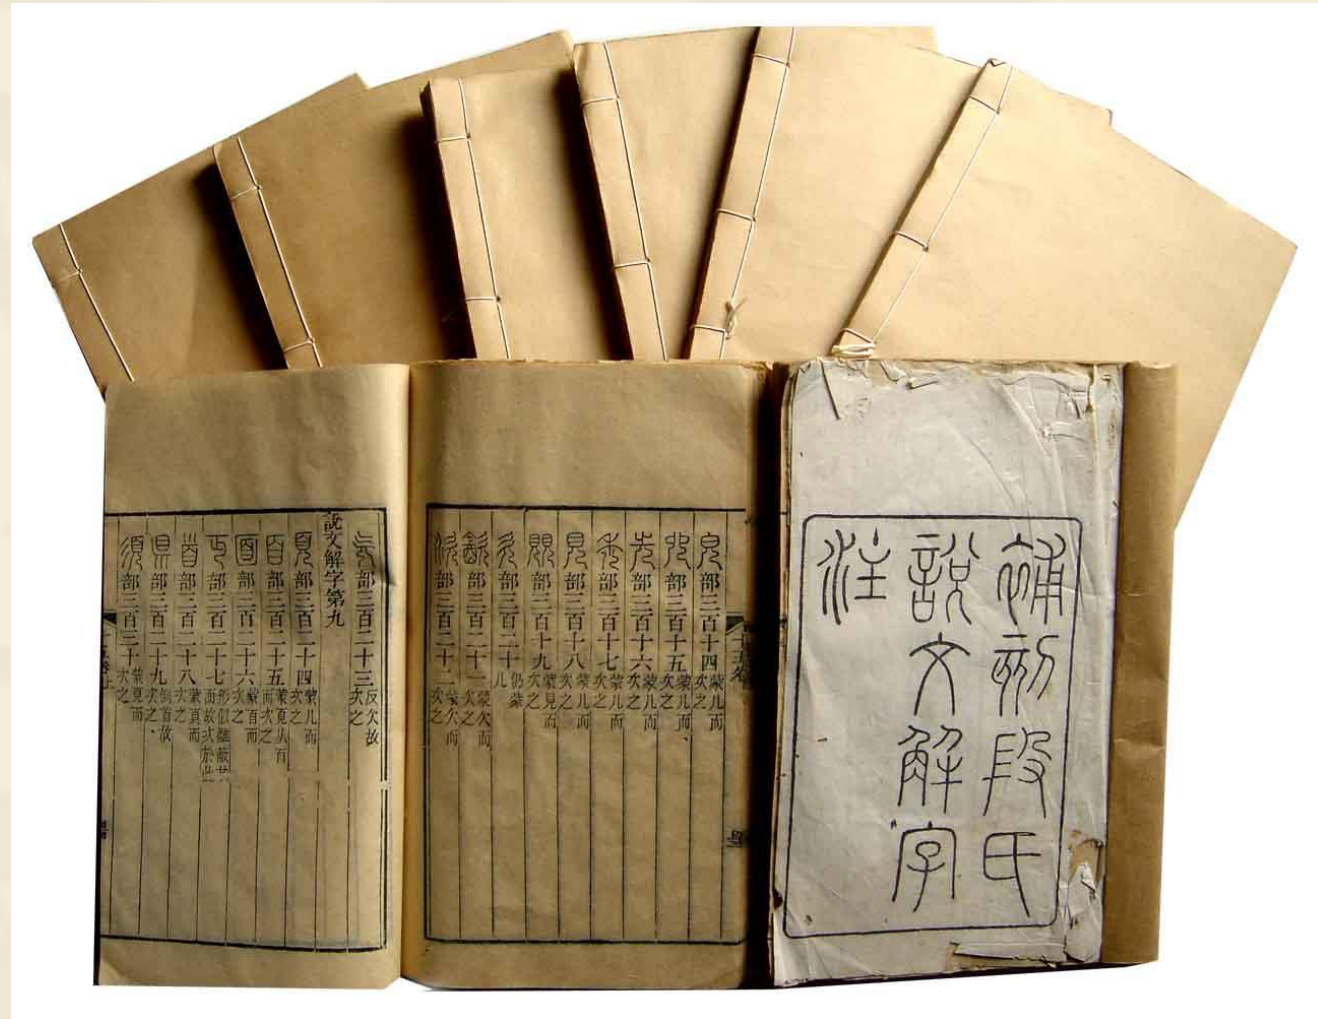 補段氏
說文解字
注
皃部三百十四蒙儿而次之
𠑹部三百十五蒙儿而次之
先部三百十六蒙儿而次之
禿部三百十七蒙儿而次之
見部三百十八蒙儿而次之
覞部三百十九蒙見而次之
欠部三百二十仍蒙儿
㱃部三百二十一蒙欠而次之
㳄部三百二十二蒙欠而次之
旡部三百二十三反欠故次之
說文解字第九
頁部三百二十四蒙儿而次之
𦣻部三百二十五蒙頁从百而次之
面部三百二十六蒙百而次之
丏部三百二十七形似雝蔽面故次於此
首部三百二十八蒙而次之
県部三百二十九倒首故次之
須部三百三十蒙頁而次之